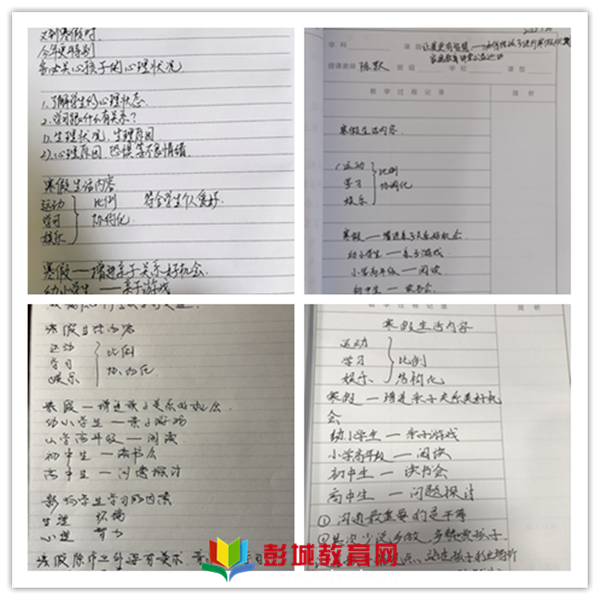 又到寒假时
今年更特别
务必关心孩子的心理状况
1.了解学生的心理状态
2.学习跟什么有关系?
1)生理状况,生理原因
2)心理原因,恐惧等不良情绪
寒假生活内容
运动
学习
娱乐
比例
结构化
符合学生个人良好
寒假—增进亲子关系好机会
幼小学生—亲子游戏
学科
课题
授课教师 陈默 班级 学校 课型
教学过程记录
简析
寒假生活内容
运动
学习
娱乐
比例
结构化
寒假—增进亲子关系好机会
幼小学生—亲子游戏
小学高年级—阅读
初中生—读书会
寒假生活内容
运动
学习
娱乐
比例
结构化
寒假—增进亲子关系好机会
幼小学生—亲子游戏
小学高年级—阅读
初中生—读书会
高中生—问题探讨
影响学生学习的因素
生理 环境
心理 智力
教学过程记录
简析
寒假生活内容
运动
学习
娱乐
比例
结构化
寒假—增进亲子关系好机
会
幼小学生—亲子游戏
小学高年级—阅读
初中生—读书会
高中生—问题探讨
①沟通最重要的是平等
彭城教育网